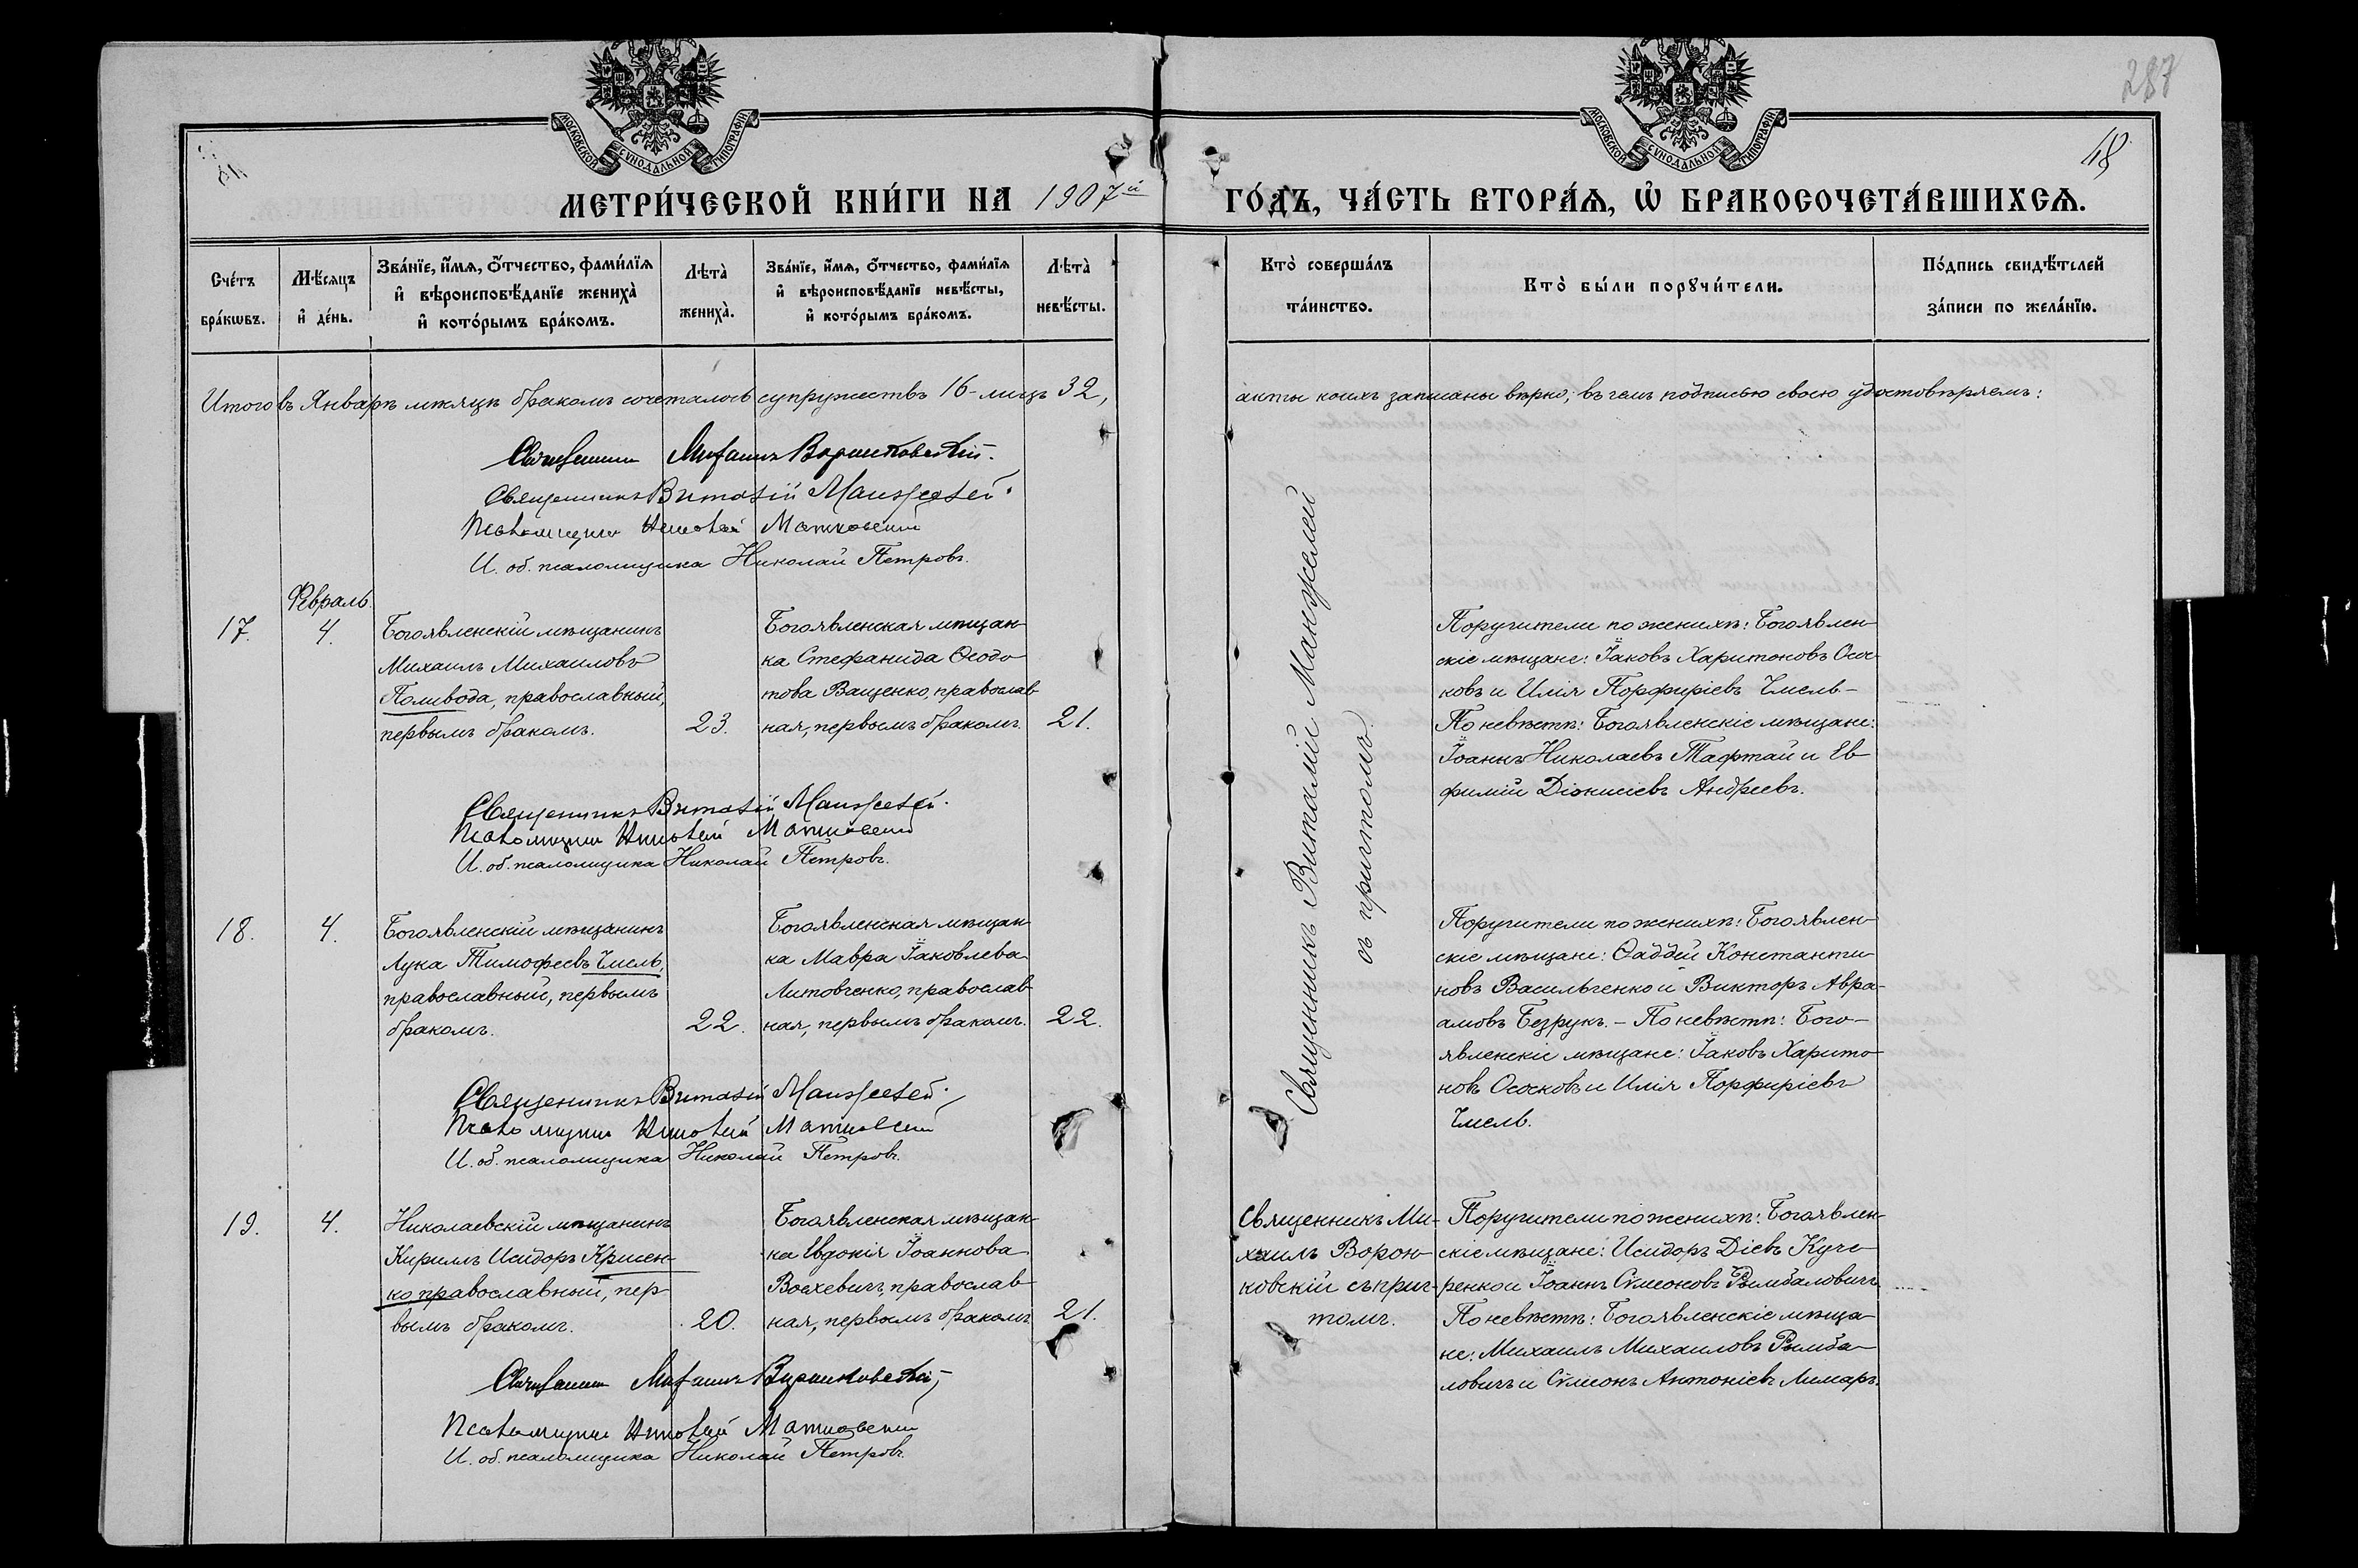 287
48
МОСКОВСКОЙ СУНОДАЛЬНОЙ ТИПОГРАФІИ
МОСКОВСКОЙ СУНОДАЛЬНОЙ ТИПОГРАФІИ
МЕТРИ́ЧЕСКОЙ КНИ́ГИ НА 1907й
ГО́ДЪ, ЧА́СТЬ ВТОРА́Ѧ, Ѡ҆ БРАКОСОЧЕТА́ВШИХСѦ.
Сче́тъ бра́кѡвъ.
Мѣ́сѧцъ и҆ де́нь.
Зва́нїе, и҆́мѧ, ѻ҆́тчество, фами́лїѧ
и҆ вѣроисповѣ́данїе жениха̀
и҆ кото́рымъ бра́комъ.
Лѣта̀ жениха̀.
Зва́нїе, и҆́мѧ, ѻ҆́тчество, фами́лїѧ
и҆ вѣроисповѣ́данїе невѣ́сты,
и҆ кото́рымъ бра́комъ.
Лѣта̀ невѣ́сты.
Кто̀ соверша́лъ та́инство.
Кто̀ бы́ли порꙋчи́тели.
По́дпись свидѣ́телей
за́писи по жела́нїю.
Итого въ Январѣ мѣсяцѣ бракомъ сочеталось супружествъ 16 - лицъ 32,
акты коихъ записаны вѣрно, въ чемъ подписью своею удостовѣряемъ:
Священникъ Михаилъ Воронковскій.
Священникъ Виталій Манжелей.
Псаломщикъ Матковскій
И. об. псаломщика Николай Петровъ.
Февраль.
17.
4.
Богоявленскій мѣщанинъ
Михаилъ Михаиловъ
Поливода, православный,
первымъ бракомъ.
23.
Богоявленская мѣщан-
ка Стефанида Ѳеодо-
това Ващенко, православ-
ная, первымъ бракомъ.
21.
Священникъ Виталій Манжелей
съ причтомъ.
Поручители по женихѣ: Богоявлен-
скіе мѣщане: Іаковъ Харитоновъ Осос-
ковъ и Илія Порфиріевъ Чмель -
По невѣстѣ: Богоявленскіе мѣщане:
Іоаннъ Николаевъ Тафтай и Ев-
фимій Діонисіевъ Андреевъ.
Священникъ Виталій Манжелей.
Псаломщикъ Матковскій
И. об. псаломщика Николай Петровъ.
18.
4.
Богоявленскій мѣщанинъ
Лука Тимофеевъ Чмель,
православный, первымъ
бракомъ.
22.
Богоявленская мѣщан-
ка Мавра Іаковлева
Литовченко, православ-
ная, первымъ бракомъ.
22.
Поручители по женихѣ: Богоявлен-
скіе мѣщане: Ѳаддей Константи-
новъ Васильченко и Викторъ Авра-
амовъ Безрукъ. - По невѣстѣ: Бого-
явленскіе мѣщане: Іаковъ Харито-
новъ Ососковъ и Илія Порфиріевъ
Чмель.
Священникъ Виталій Манжелей.
Псаломщикъ Матковскій
И. об. псаломщика Николай Петровъ.
19.
4.
Николаевскій мѣщанинъ
Кириллъ Исидоръ Крисен-
ко православный, пер-
вымъ бракомъ.
20.
Богоявленская мѣщан-
ка Евдокія Іоаннова
православ-
ная, первымъ бракомъ
21.
Священникъ Ми-
хаилъ Ворон-
ковскій съ прич-
томъ.
Поручители по женихѣ: Богоявлен-
скіе мѣщане: Исидоръ Діевъ Куче-
ренко и Іоаннъ Сѵмеоновъ Рымбаловичъ.
По невѣстѣ: Богоявленскіе мѣща-
не: Михаилъ Михаиловъ Рымба-
ловичъ и Сѵмеонъ Антоніевъ Лимаръ.
Священникъ Михаилъ Воронковскій,
Псаломщикъ Матковскій
И. об. псаломщика Николай Петровъ.